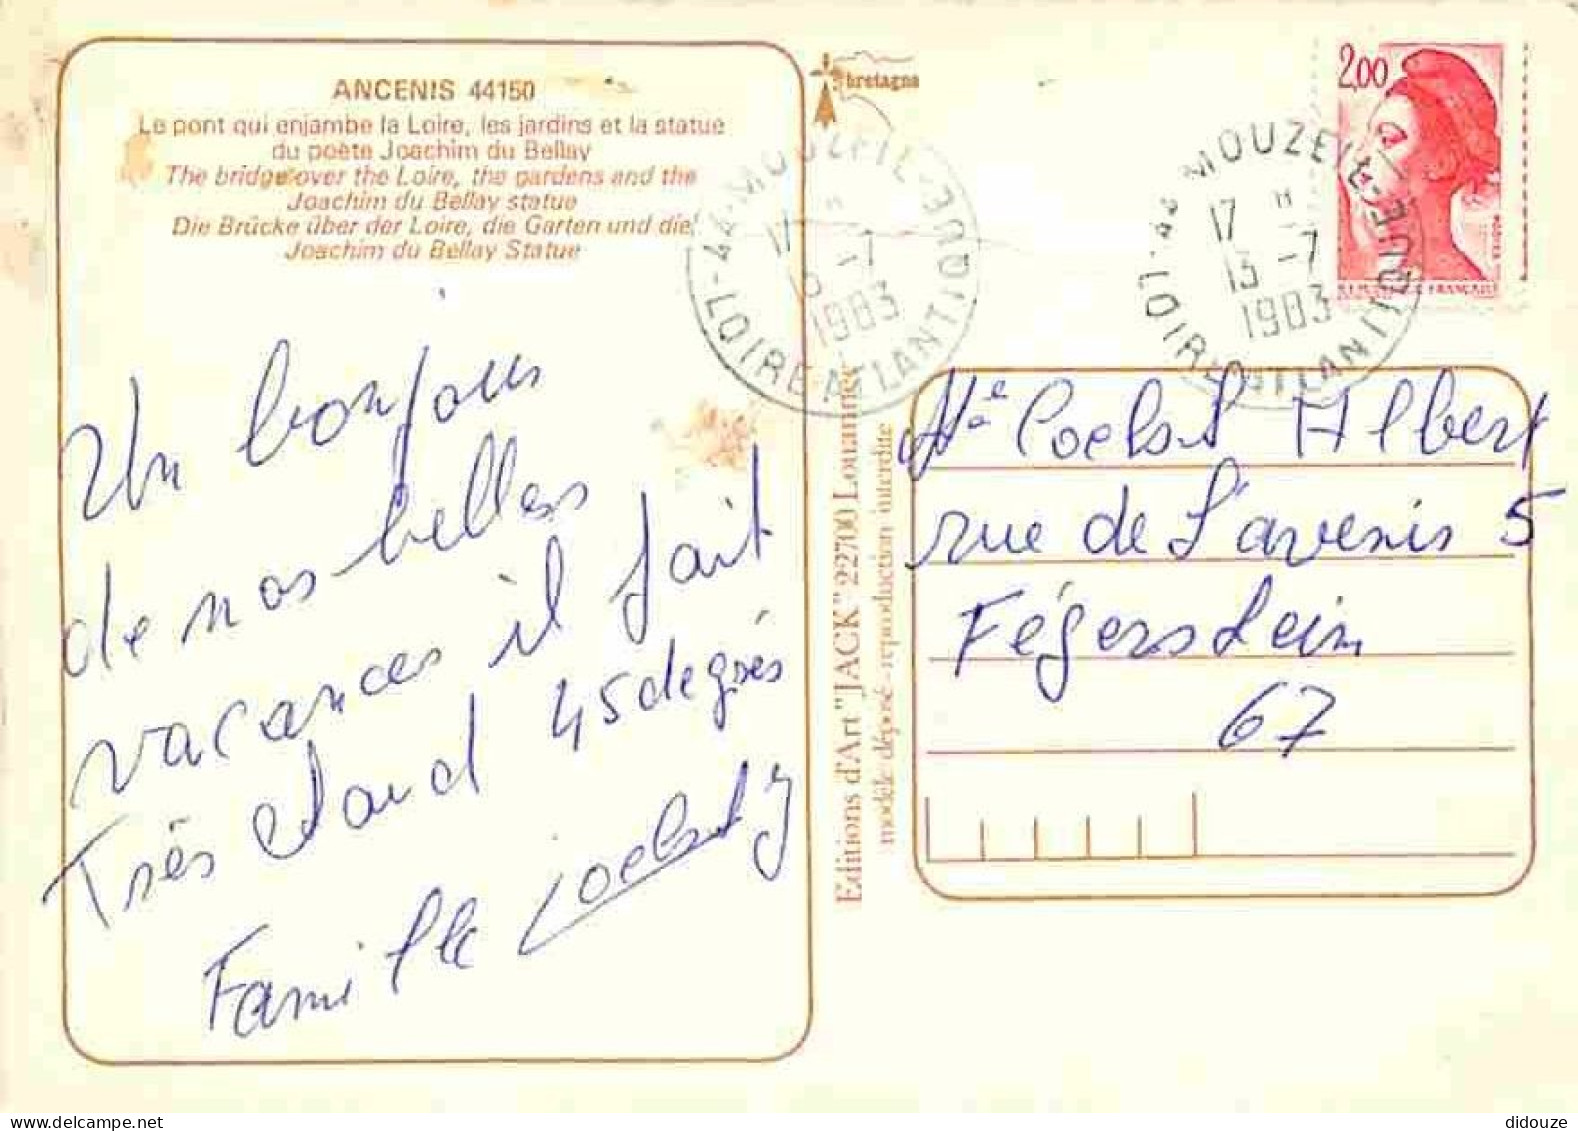 ANCENIS 44150
Le pont qui enjambe la Loire, les jardins et la statue
du poète Joachim du Bellay
The bridge over the Loire, the gardens and the
Joachim du Bellay statue
Die Brücke über der Loire, die Garten und die
Joachim du Bellay Statue
Un bonjour
de nos belles
vacances il fait
Très chaud 45 degrés
Famille
bretagne
44-MOUZEIL
17 H
13-7
1983
LOIRE-ATLANTIQUE
2,00
44-MOUZEIL
17 H
13-7
1983
LOIRE-ATLANTIQUE
Editions d'Art "JACK" 22700 Louannec
modèle déposé - reproduction interdite
Albert
rue de l'avenir 5
Fégersheim
67
didouze